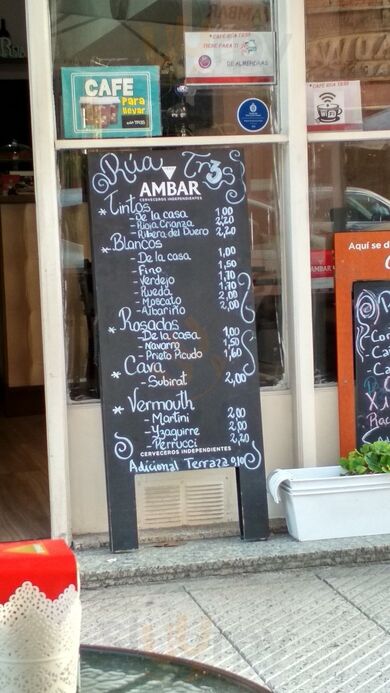 AMBAR
CAFE RICA TASS
TIENE PARA TI
DE ALMENDRAS
CAFE
Para
llevar
CAFE RICA TASS
WiFi
Rúa Tr3s
AMBAR
CERVECEROS INDEPENDIENTES
* Tintos
- De la casa 1,00
- Rioja Crianza 2,20
- Ribera del Duero 2,20
* Blancos
- De la casa 1,00
- Fino 1,50
- Verdejo 1,70
- Rueda 1,70
- Moscato 2,00
- Albariño 2,00
* Rosados
- De la casa 1,00
- Navarro 1,50
- Prieto Picudo 1,60
* Cava
- Subirat 2,00
* Vermouth
- Martini 2,00
- Yzaguirre 2,00
- Perrucci 2,20
CERVECEROS INDEPENDIENTES
Adicional Terraza 0,10
Aquí se d
AMBAR